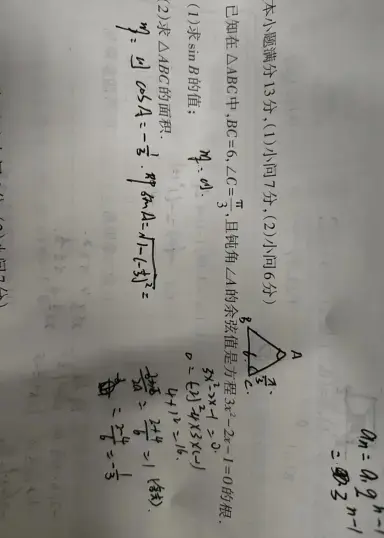 本小题满分13分,(1)小问7分,(2)小问6分)
已知在△ABC中,BC=6,∠C=π/3,且钝角∠A的余弦值是方程3x²-2x-1=0的根.
(1)求sinB的值;
(2)求△ABC的面积.
cosA=-1/3.
sinA=√1-(-1/3)²=
A
B
6
π/3
C.
3x²-2x-1=0.
4+12=16.
=(2+4)/6=1
=(2-4)/6=-1/3
an=a1q^n-1
3^n-1